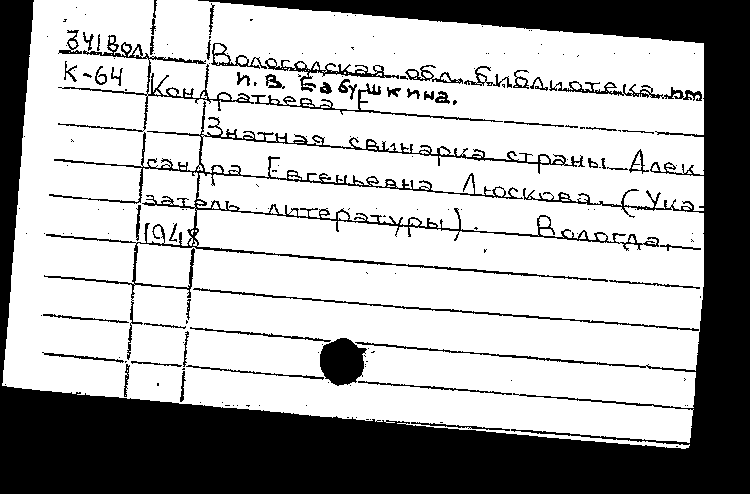 З41Вол.
Вологодская обл. библиотека им
К-64 И. В. Бабушкина.
Кондратьева, Е
Знатная свинарка страны Алек
сандра Евгеньевна Люскова. (Ука-
затель литературы). Вологда,
1948